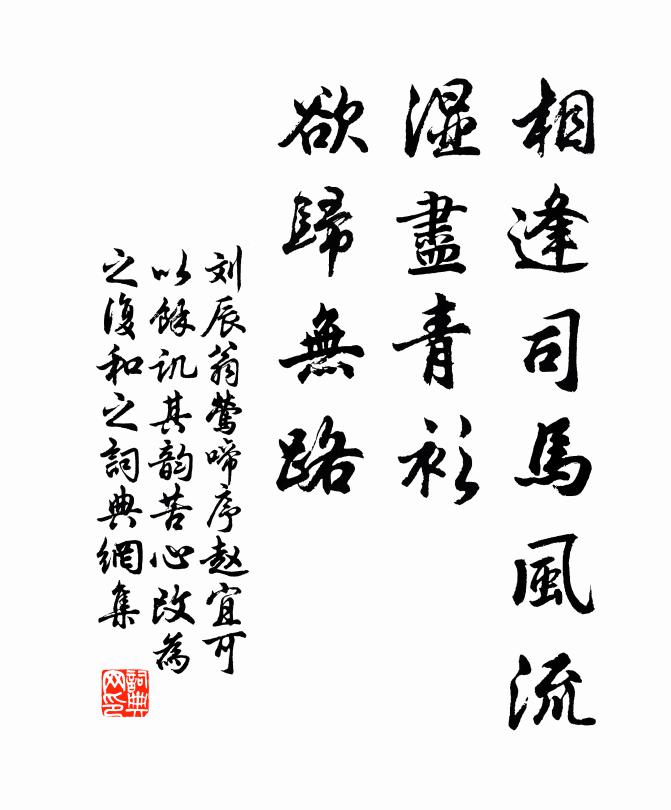 相逢司馬風流
濕盡青衫
欲歸無路
刘辰翁鶯啼序赵宜可
以餘讥其韵苦心改為
之復和之詞典網集
詞典
网印